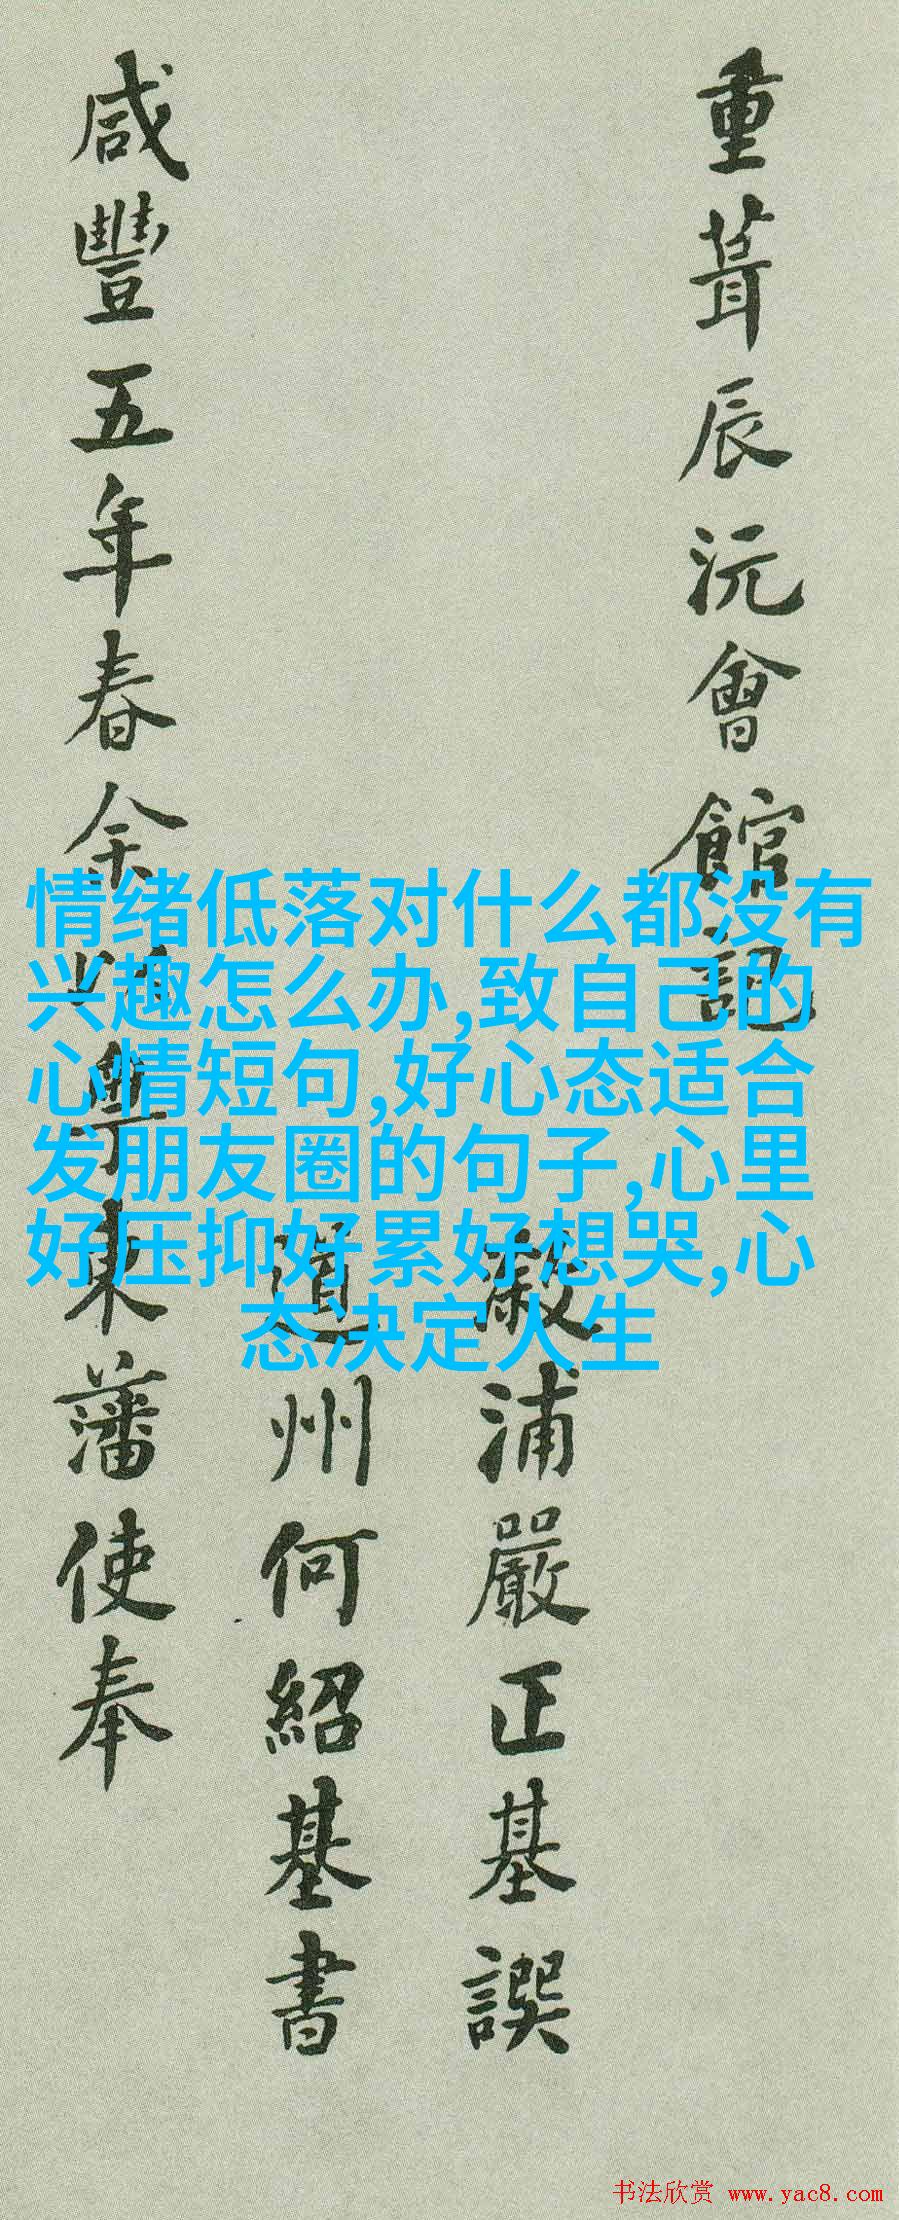 重葺辰沅會館記
漵浦嚴正基譔
道州何紹基書
咸豐五年春余以粵東藩使奉
情绪低落对什么都没有
兴趣怎么办,致自己的
心情短句,好心态适合
发朋友圈的句子,心里
好压抑好累好想哭,心
态决定人生
书法欣赏 www.yac8.com